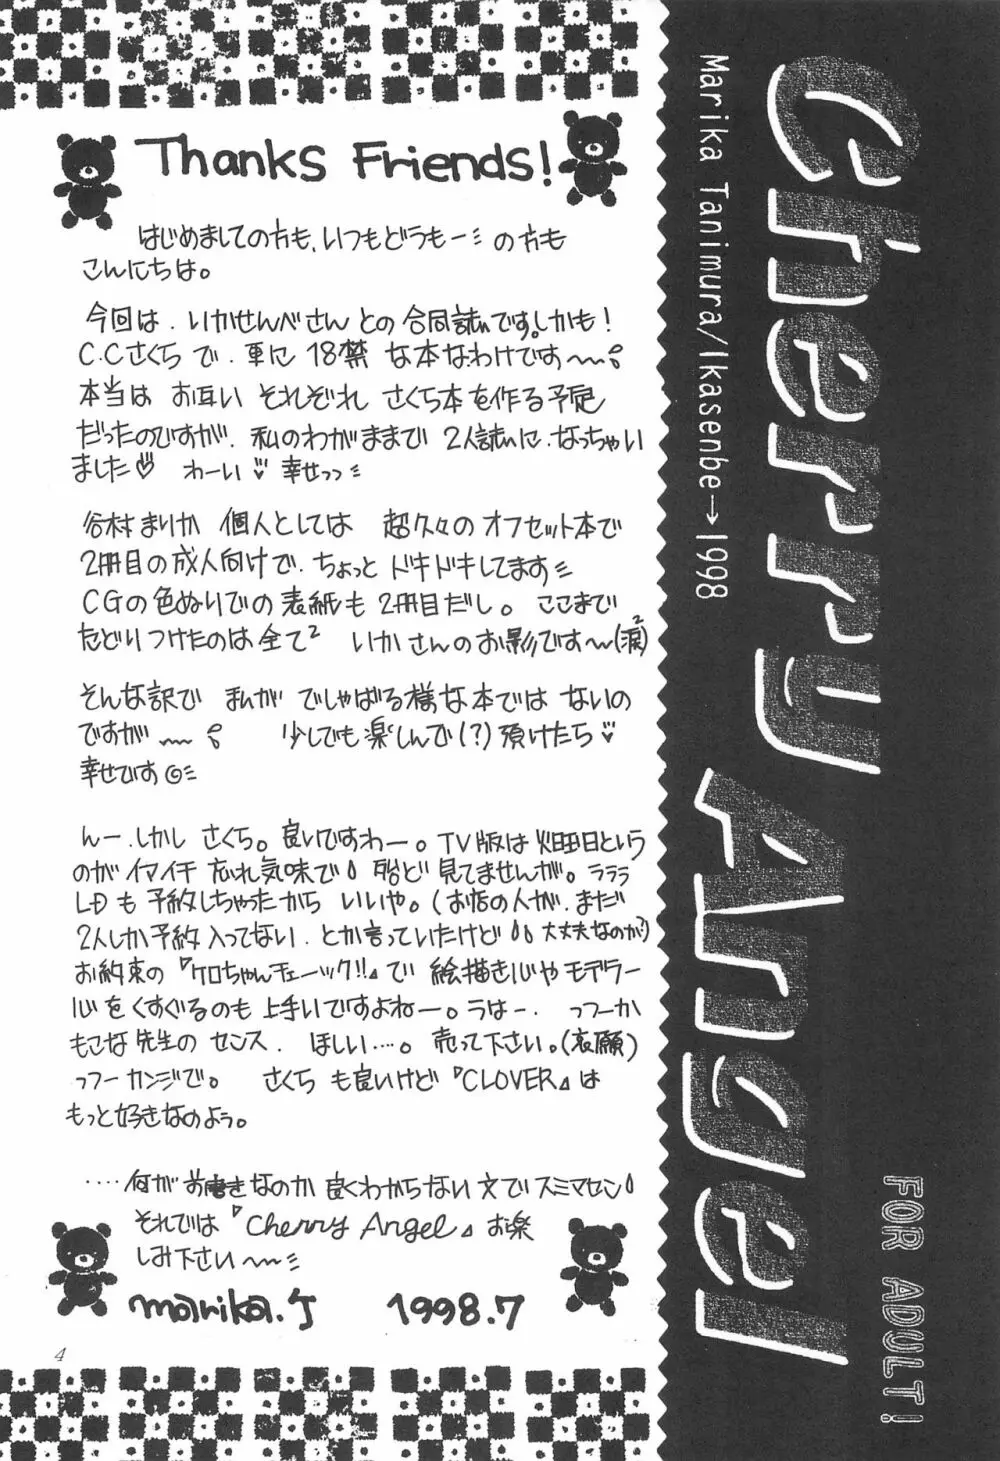 Thanks Friends!
はじめましての方も、いつもどうもーの方も
こんにちは。
今回は、いかせんべさんとの合同誌いです。しかも!
C.Cさくらで、更に18禁な本なわけです〜
本当はお互いそれぞれさくら本を作る予定
だったのですが、私のわがままで2人誌いに、なっちゃい
ました♡ わーい♡ 幸せっっ
谷村まりか個人としては超久々のオフセット本で
2冊目の成人向けで、ちょっとドキドキしてます
CGの色ぬりでの表紙も2冊目だし。ここまで
たどりつけたのは全て² いかさんのお影です〜(涙²)
そんな訳でまんがでしゃばる様な本ではないの
ですが〜 少しでも楽しんで(?)頂けたら♡
幸せです◎
んー、しかしさくら。良いですわー。TV版は火曜日という
のがイマイチ忘れ気味で 殆ど見てませんが。ラララ
LDも予約しちゃったからいいや。(お店の人が、まだ
2人しか予約入ってない、とか言っていたけど 大丈夫なのか?)
お約束の『ケロちゃんチェーック!!』で絵描き心やモデラー
心をくすぐるのも上手いですよねー。うはー、っつーか
もこな先生のセンス、ほしい…。売って下さい。(哀願)
っつーカンジで。さくらも良いけど『CLOVER』は
もっと好きなのよう。
‥‥何がお書きなのか良くわからない文でスミマセン
それでは『Cherry Angel』お楽
しみ下さい〜
marika.T 1998.7
4
Cherry Angel
Marika Tanimura/Ikasenbe→1998
FOR ADULT!